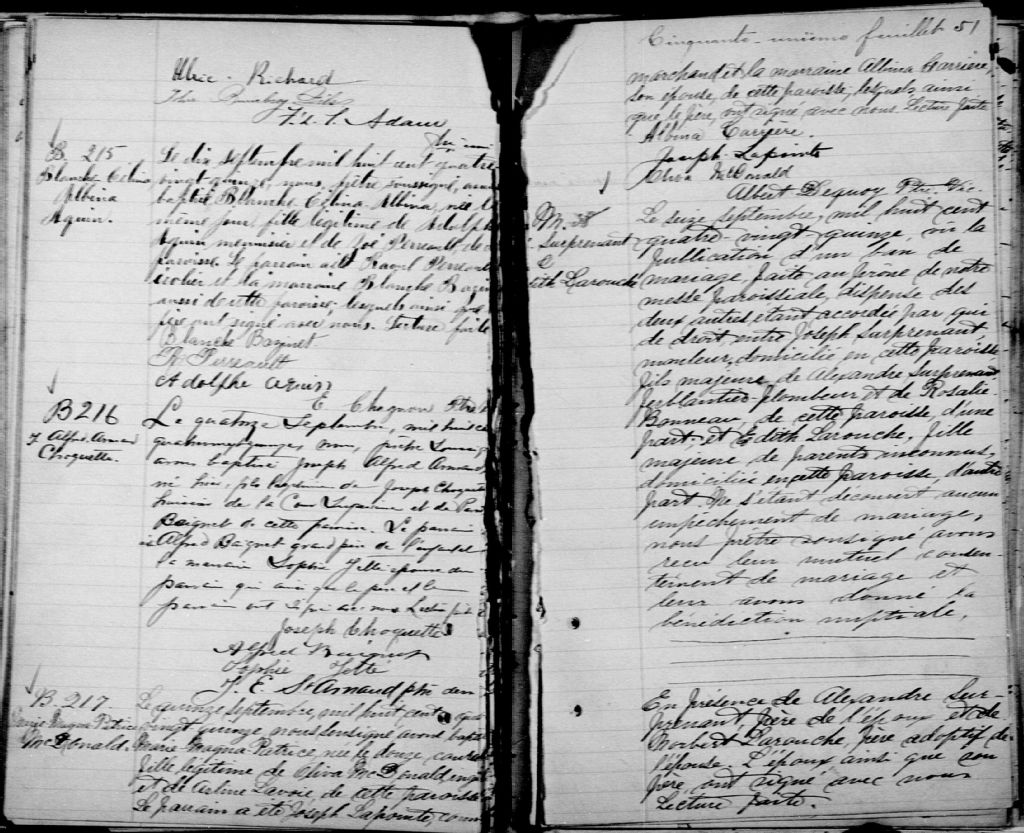 Ulric Richard
Fils
F. L. T. Adam
B. 215.
Blanche Celina
Albina
Aquin.
Le dix septembre mil huit cent quatre
vingt quinze, nous, prêtre soussigné, avons
baptisé Blanche Celina Albina, née le
même jour, fille légitime de Adolphe
Aquin menuisier et de Perreault, de
paroisse. Le parrain a été Raoul Perreault
écolier et la marraine Blanche
aussi de cette paroisse, lesquels ainsi que
père ont signé avec nous. Lecture faite
Blanche Baquet
Perreault
Adolphe Aquin
E. Chagnon Ptre
B 216
J. Alfred Armand
Choquette.
Le quatorze Septembre, mil huit cent
quatrevingtquinze, nous, prêtre soussigné
avons baptisé Joseph Alfred Armand
né hier, fils légitime de Joseph Choquette
huissier de la Cour Supérieure et de
Baignet de cette paroisse. Le parrain
Alfred Baignet grand père de l'enfant et
la marraine Sophie Jetté épouse du
parrain qui ainsi que le père et le
parrain ont signé avec nous Lecture faite
Joseph Choquette
Alfred Baignet
Sophie Jetté
J. E. St Arnaud ptre
B. 217
Marie Magna Patrice
McDonald.
Le quinze septembre, mil huit cent quatre
vingt quinze, nous soussigné avons baptisé
Marie Magna Patrice née le douze courant
fille légitime de Oliva McDonald
et de Arline Lavoie, de cette paroisse
Le parrain a été Joseph Lapointe, comm
Cinquante-unième feuillet 51
marchand et la marraine Albina Carrière,
son épouse, de cette paroisse, lesquels ainsi
que le père, ont signé avec nous. Lecture faite
Albina Carriere.
Joseph Lapointe
Oliva McDonald
Albert Dequoy Ptre. Vic.
M. 38
Surprenant
&
Edith Larouche
Le seize septembre, mil huit cent
quatre-vingt quinze, vu la
publication d'un ban de
mariage faite au prone de notre
messe paroissiale, dispense des
deux autres étant accordée par qui
de droit entre Joseph Surprenant
mouleur, domicilié en cette paroisse
fils majeur de Alexandre Surprenant
ferblantier-plombeur et de Rosalie
Bonneau de cette paroisse, d'une
part et Edith Larouche, fille
majeure de parents inconnus,
domiciliée en cette paroisse, d'autre
part. Ne s'étant découvert aucun
empêchement de mariage,
nous prêtre soussigné avons
reçu leur mutuel consen-
tement de mariage et
leur avons donné la
bénédiction nuptiale,
En présence de Alexandre Sur-
prenant père de l'époux et de
Norbert Larouche, père adoptif de
l'épouse. L'époux ainsi que son
père, ont signé avec nous
Lecture faite.